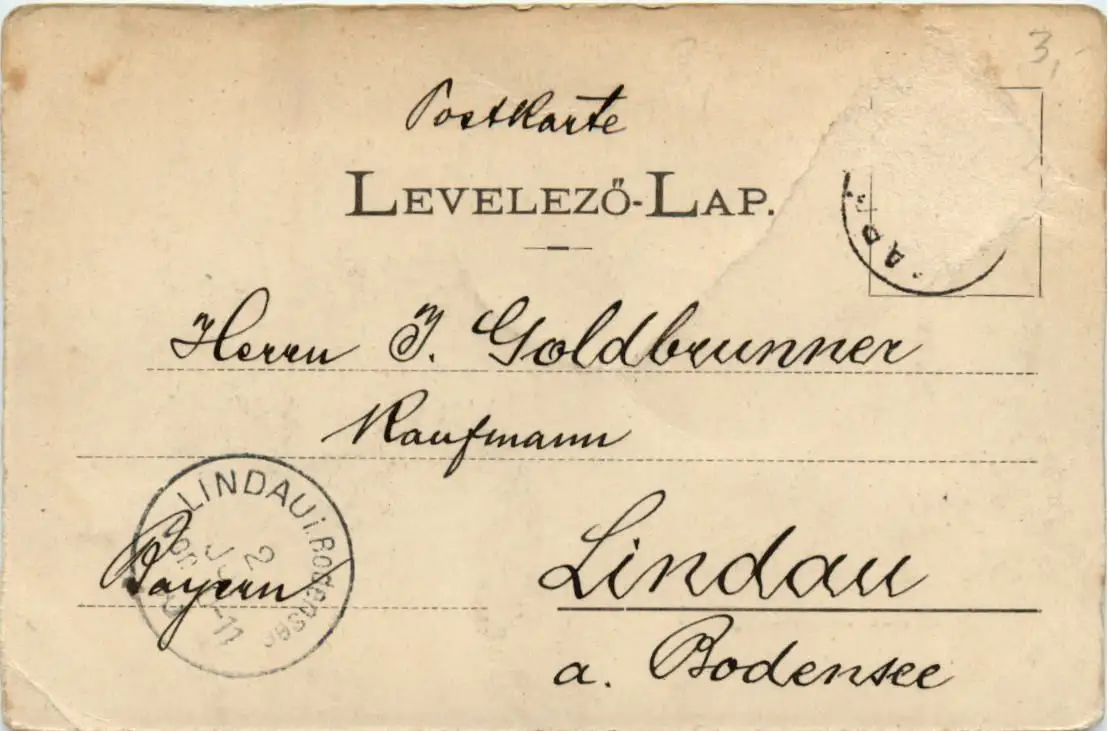 3,-
Postkarte
LEVELEZŐ-LAP.
Herrn J. Goldbrunner
Kaufmann
LINDAU i. Bodensee
2
Bayern
Lindau
a. Bodensee